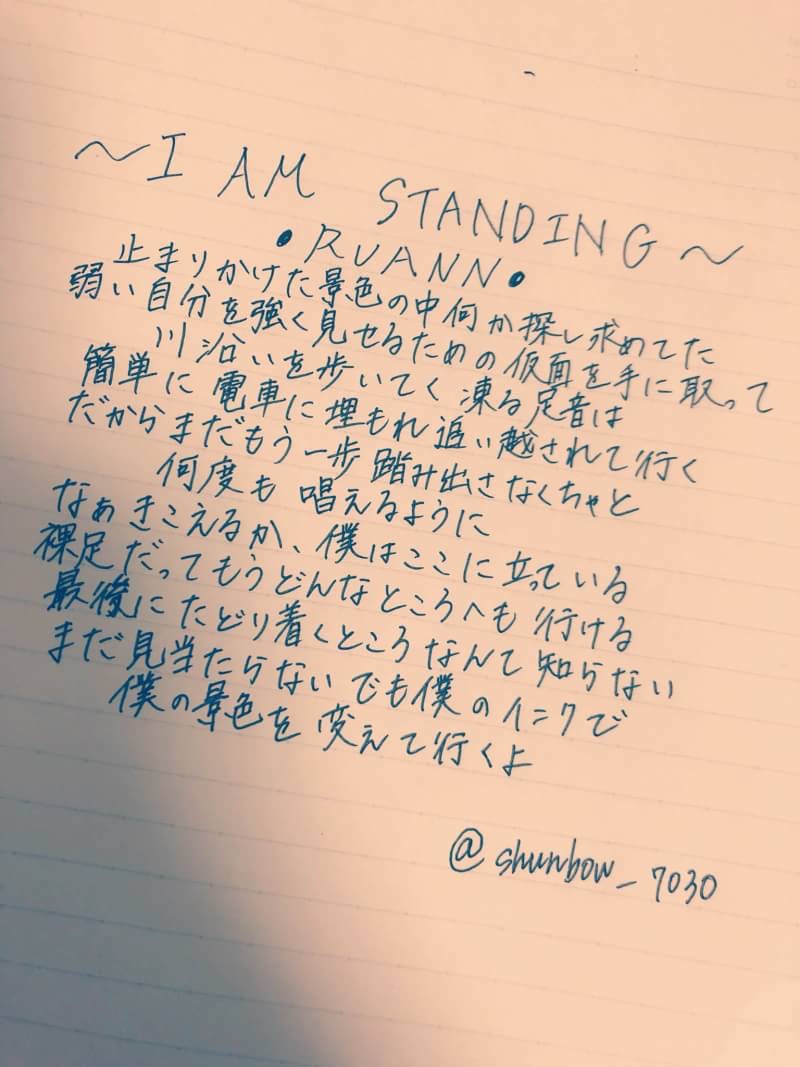 ～I AM STANDING～
•RUANN•
止まりかけた景色の中何か探し求めてた
弱い自分を強く見せるための仮面を手に取って
川沿いを歩いてく凍る足音は
簡単に電車に埋もれ追い越されて行く
だからまだもう一歩踏み出さなくちゃと
何度も唱えるように
なぁきこえるか、僕はここに立っている
裸足だってもうどんなところへも行ける
最後にたどり着くところなんて知らない
まだ見当たらないでも僕のインクで
僕の景色を変えて行くよ
@shunbow_7030